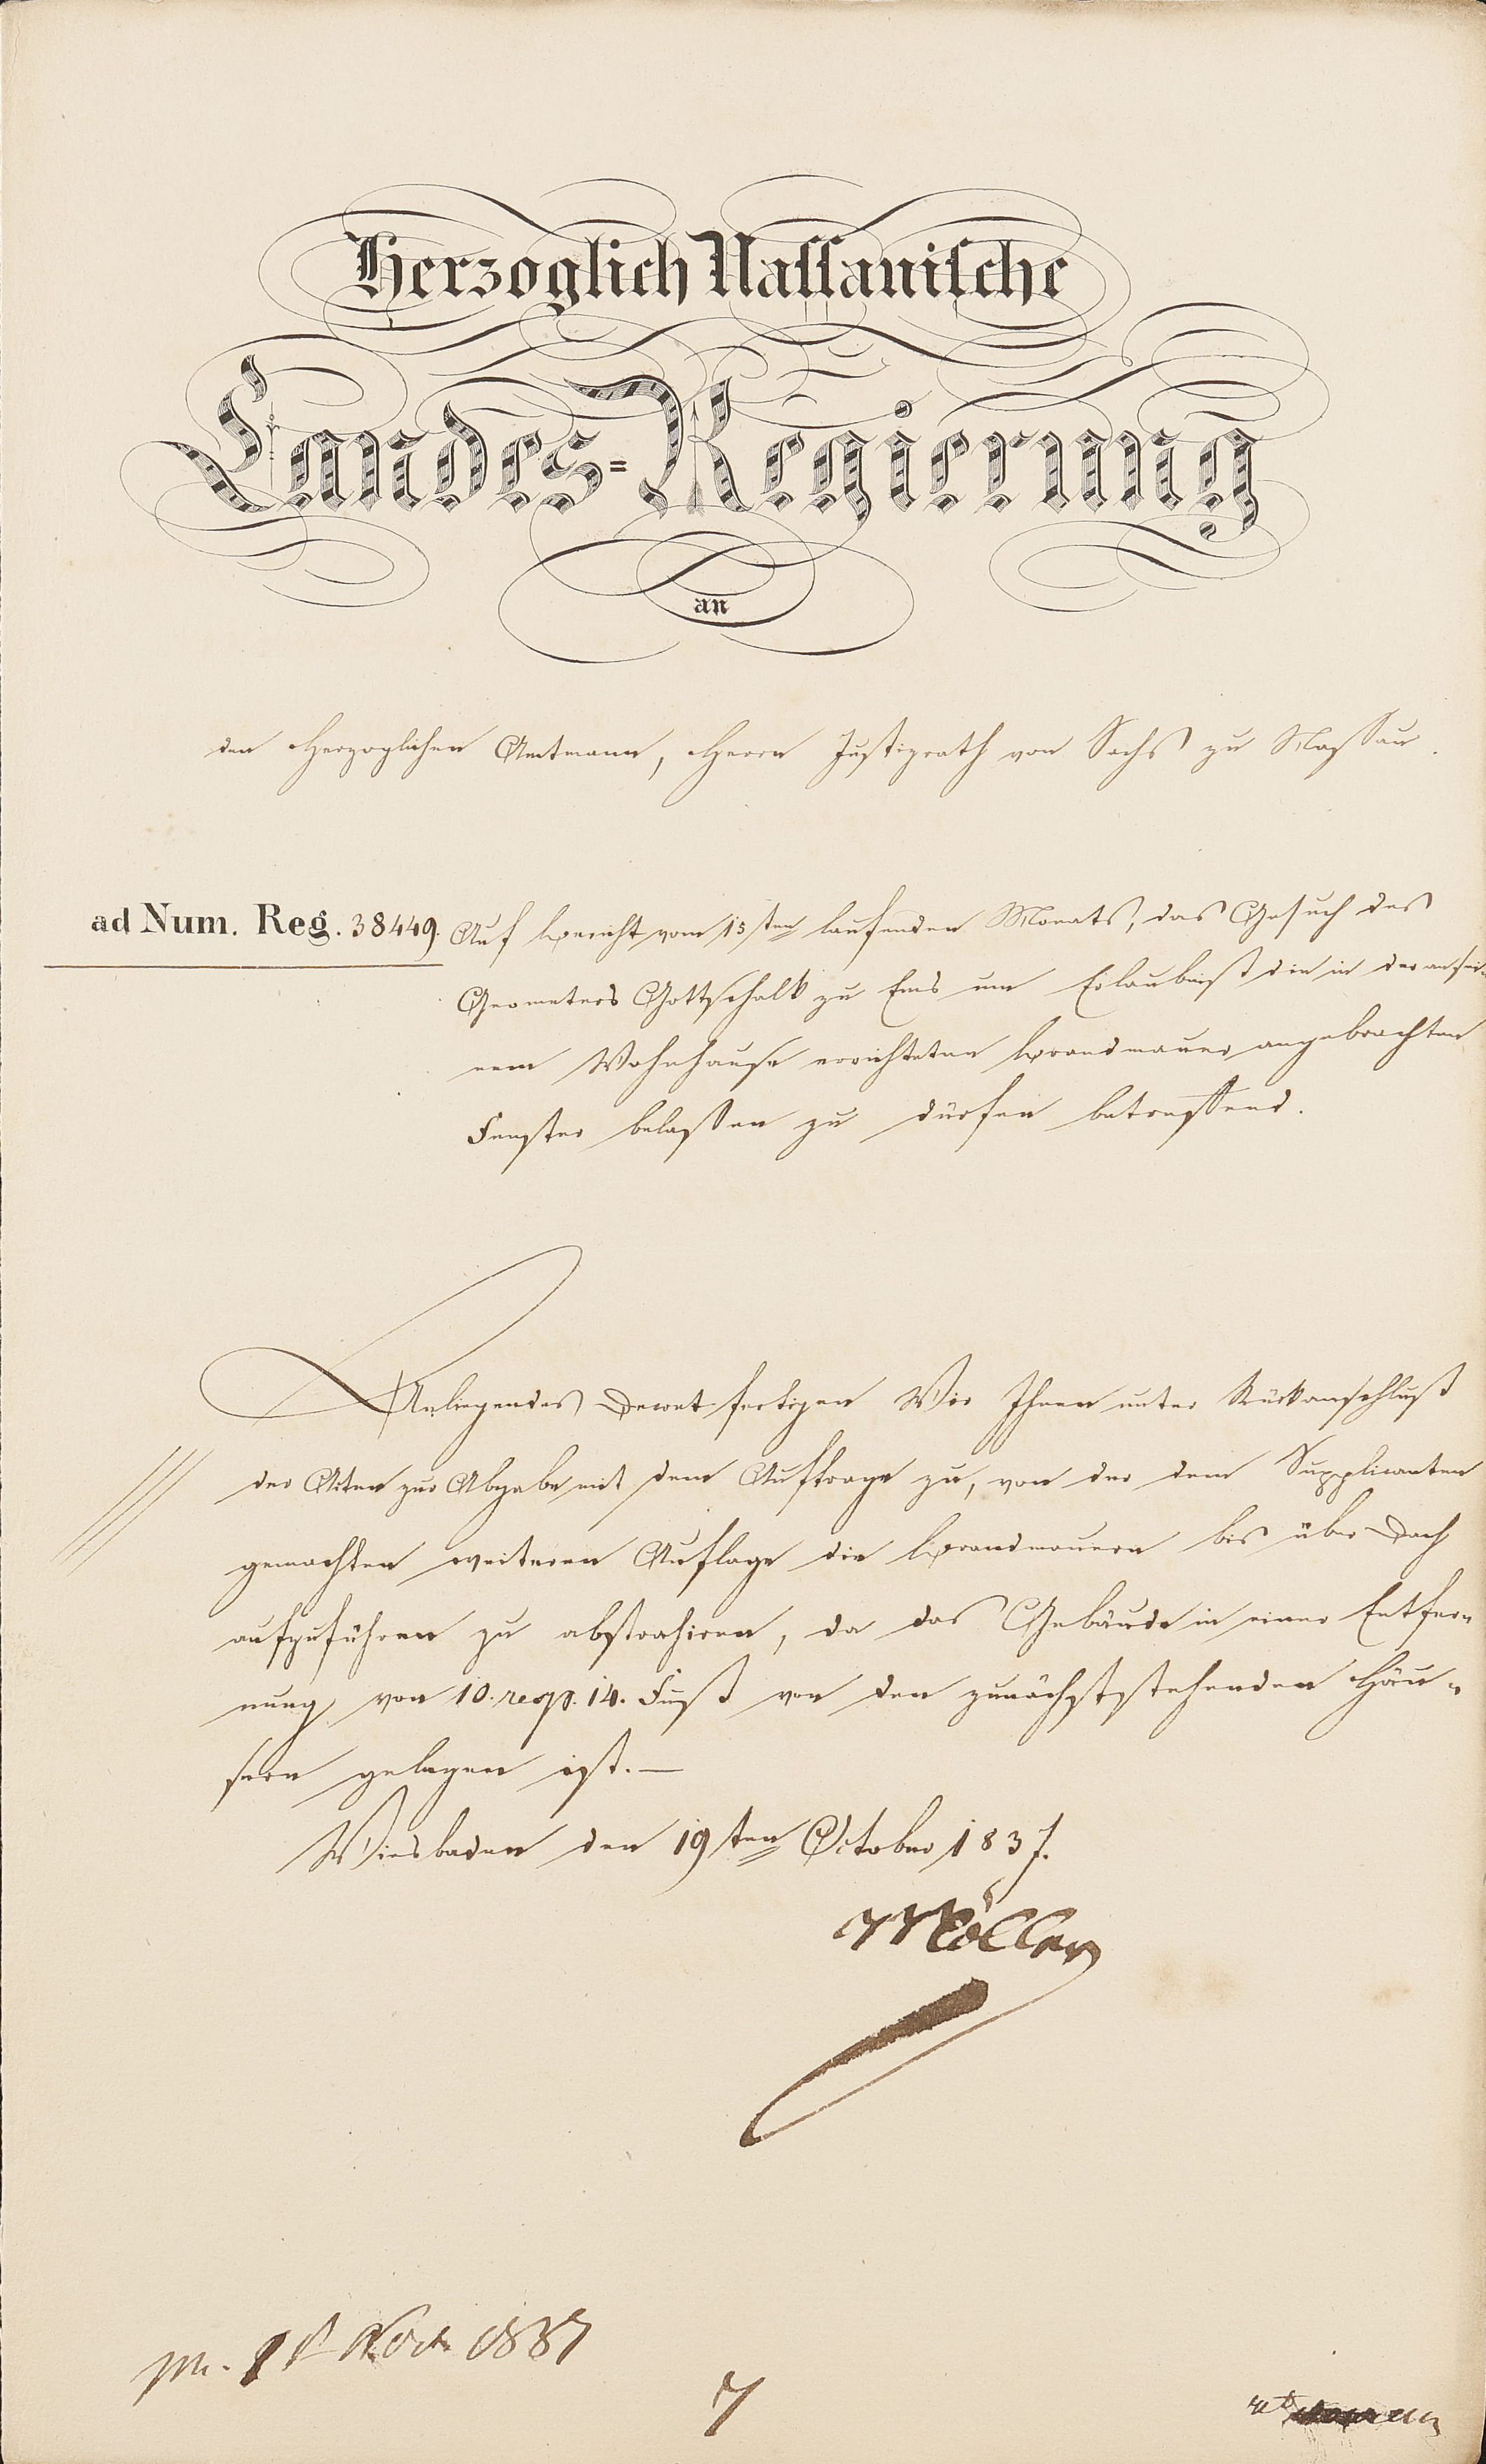 Herzoglich Nassauische
Landes-Regierung
an
den Herzoglichen Amtmann, Herrn Justizrath von Sachs zu Nassau.
ad Num. Reg. 38449. Auf Bericht vom 15ten laufenden Monats, das Gesuch des
Geometers Gottschalk zu Ems um Erlaubniß die in der an sei-
nem Wohnhause errichteten Brandmauer angebrachten
Fenster belassen zu dürfen betreffend.
Anliegendes Decret fertigen Wir Ihnen unter Rückanschluß
der Akten zur Abgabe mit dem Auftrage zu, von der dem Supplicanten
gemachten weiteren Auflage die Brandmauern bis über Dach
aufzuführen zu abstrahiren, da das Gebäude in einer Entfer-
nung von 10. resp. 14. Fuß von den zunächststehenden Häu-
sern gelegen ist.—
Wiesbaden den 19ten October 1837.
Möller
1837